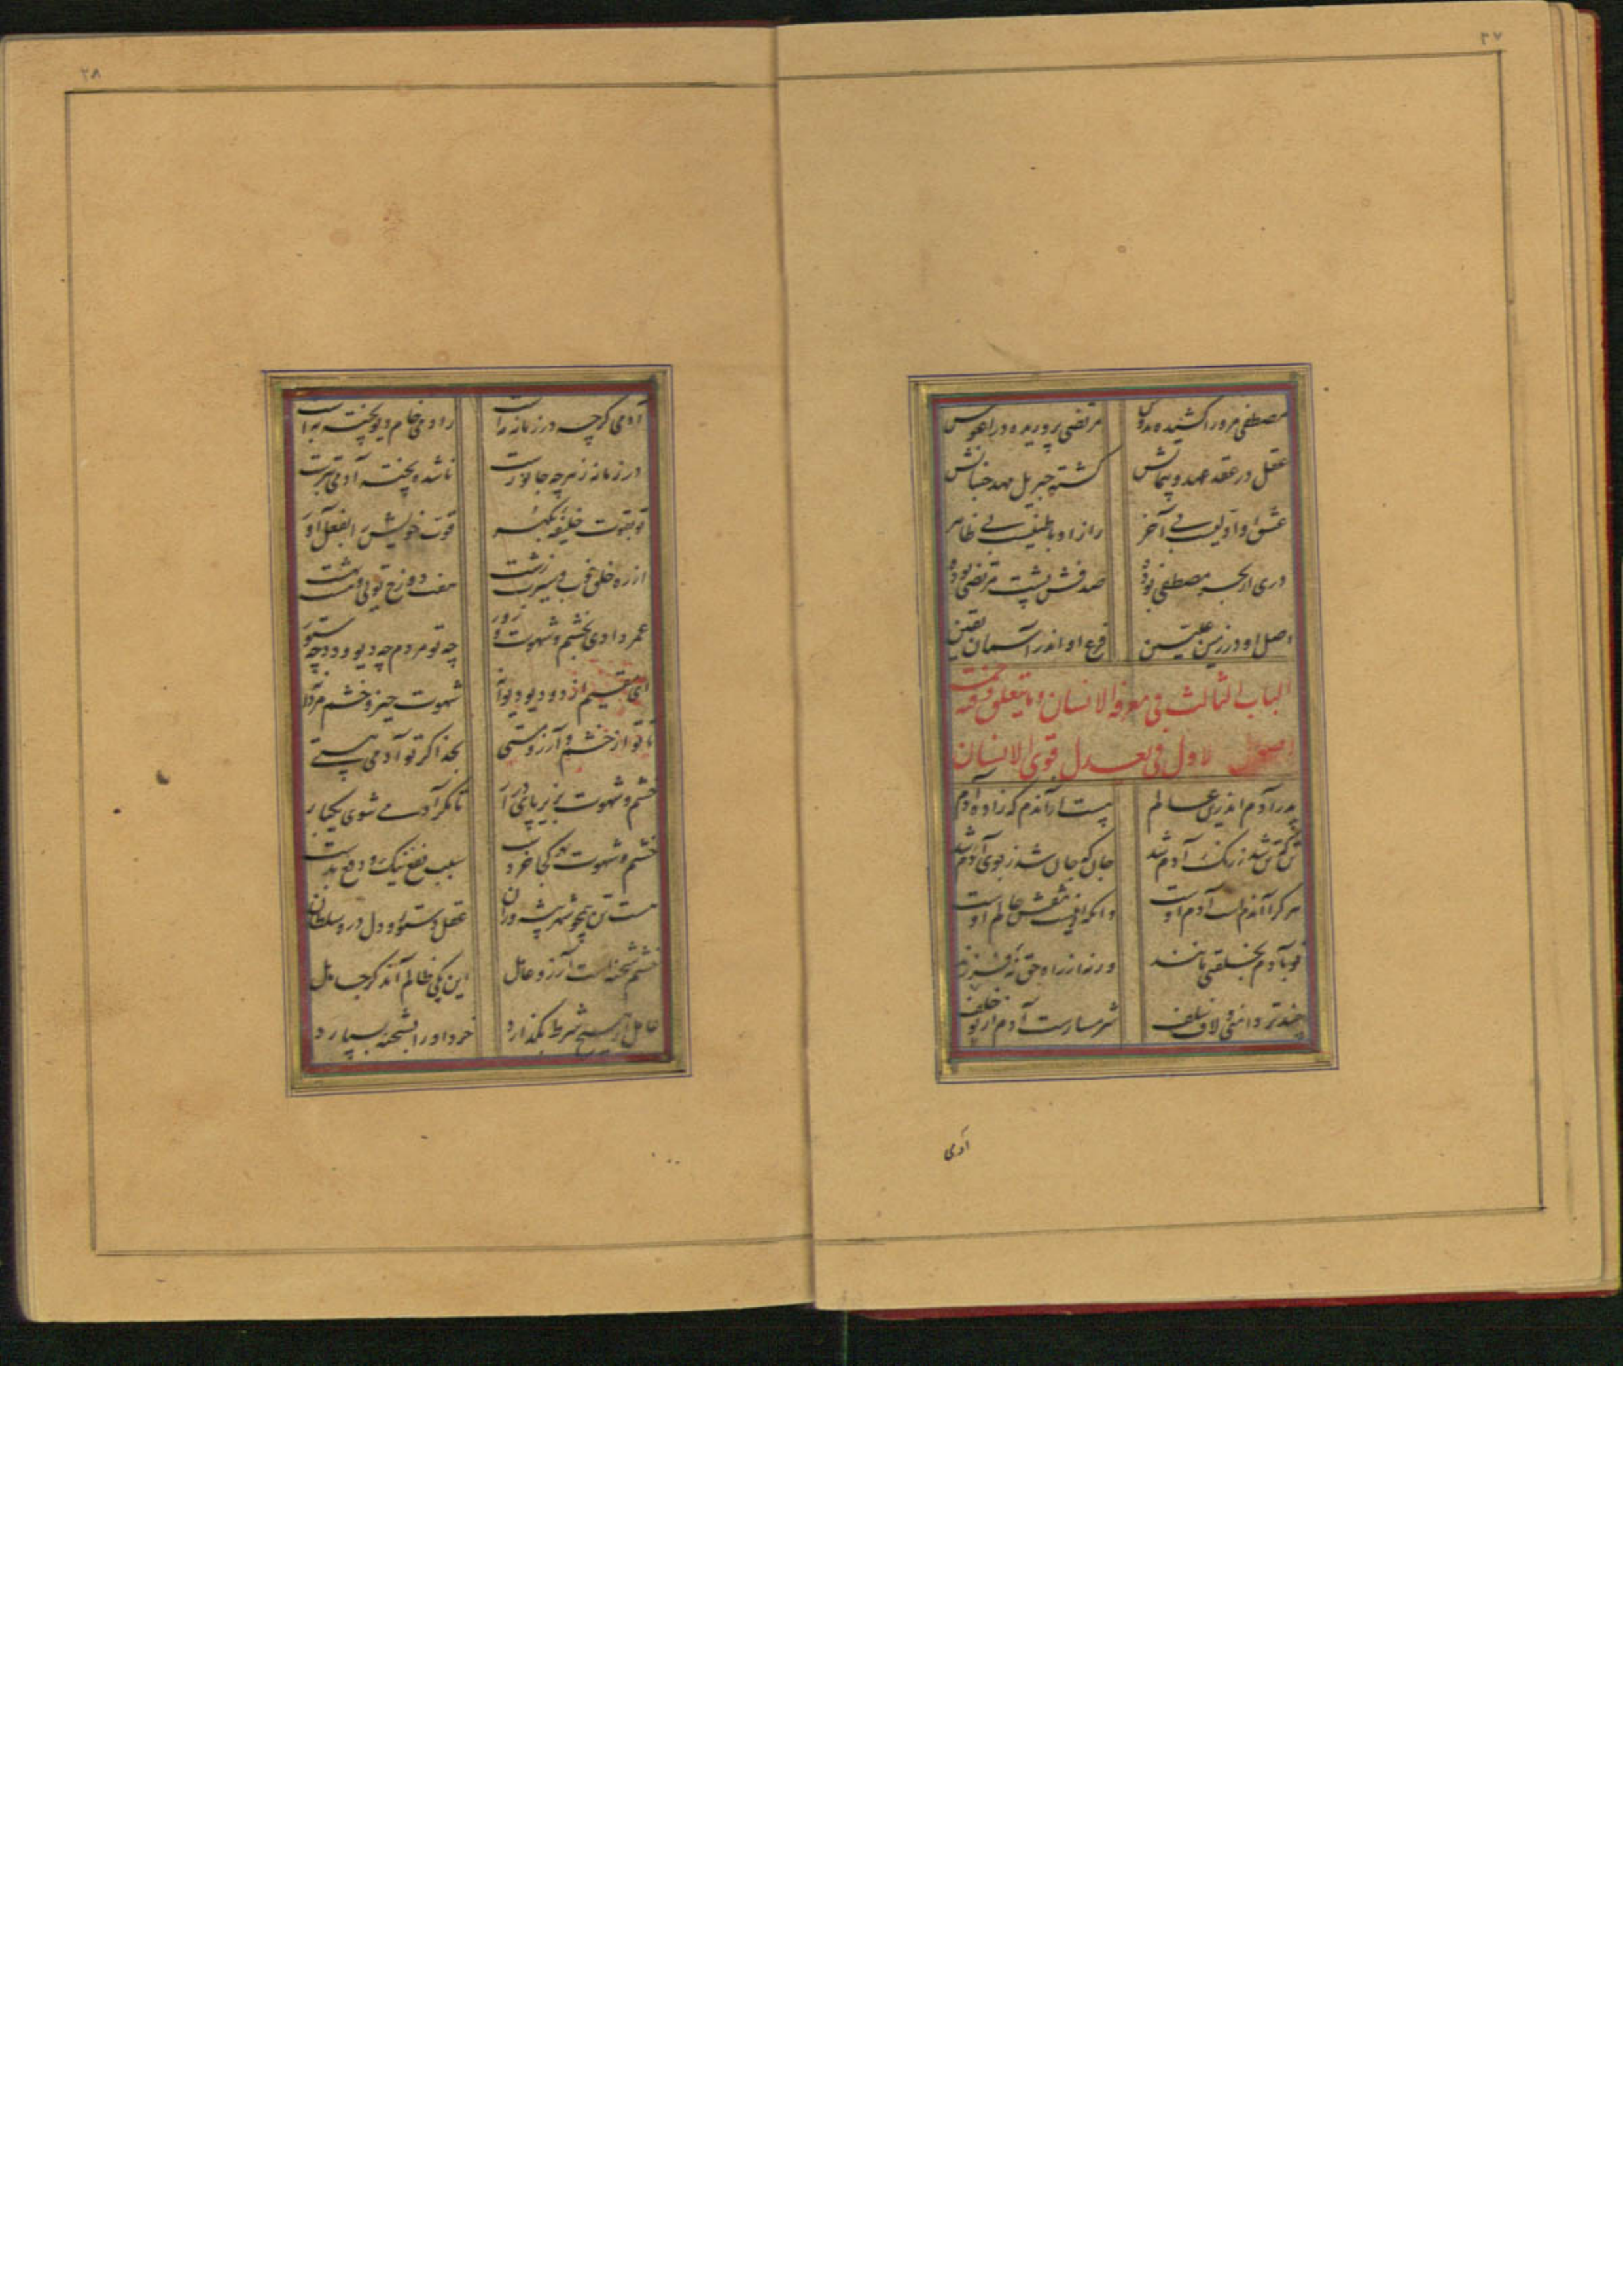 ۲۷
مصطفی مرورا کشیده بدوش مرتضی پروریده در آغوش
عقل در عقد عهد و پیمانش گشته جبریل مهد جنبانش
عشق او اولیست بی آخر راز او باطنیست بی ظاهر
دری از بحر مصطفی بوده صدفش پشت مرتضی بوده
اصل او در زمین علیین فرع او اندر آسمان یقین
الباب الثالث فی معرفة الانسان وما یتعلق
الاول فی تعدیل قوی الانسان
پدر آدم اندرین عالم هست از آندم که زاده آدم
تن که تن شد ز رنگ آدم شد جان که جان شد ز بوی آدم شد
هر کرا آندمست آدم اوست وانکه را نیست نقش عالم اوست
تو بآدم بخلقتی مانند ورنه از راه حق نه فرزند
چند تردامنی و لاف سلف شرمسارست آدم از تو خلف
آدمی
۲۸
آدمی گرچه در زمانه به است ز آدمی خام دیو پخته به است
در زمانه ز هرچه جانورست ناشده پخته آدمی بترست
تو بقوت خلیفه بگهر قوت خویش را بفعل آور
از ره خلق خوب و سیرت زشت هفت دوزخ تویی و هشت بهشت
عمر دادی بخشم و شهوت و زور چه تو مردم چه دیو و دد چه ستور
ای مقیم از دو دیو دیوآسا شهوت حیز و خشم مردآسا
تا تو از خشم و آرزو مستی بخدا گر تو آدمی هستی
خشم و شهوت بزیر پای در آر تا مگر آدمی شوی یکبار
خشم و شهوت کجا خردست سبب نفع نیک و دفع بدست
هست تن همچو شهر پیشه وران عقل دستور و دل درو سلطان
خشم شحنه است آرزو عامل این یکی ظالم آن دگر جاهل
عامل ار هیچ شرط بگذارد خرد او را بشحنه بسپارد